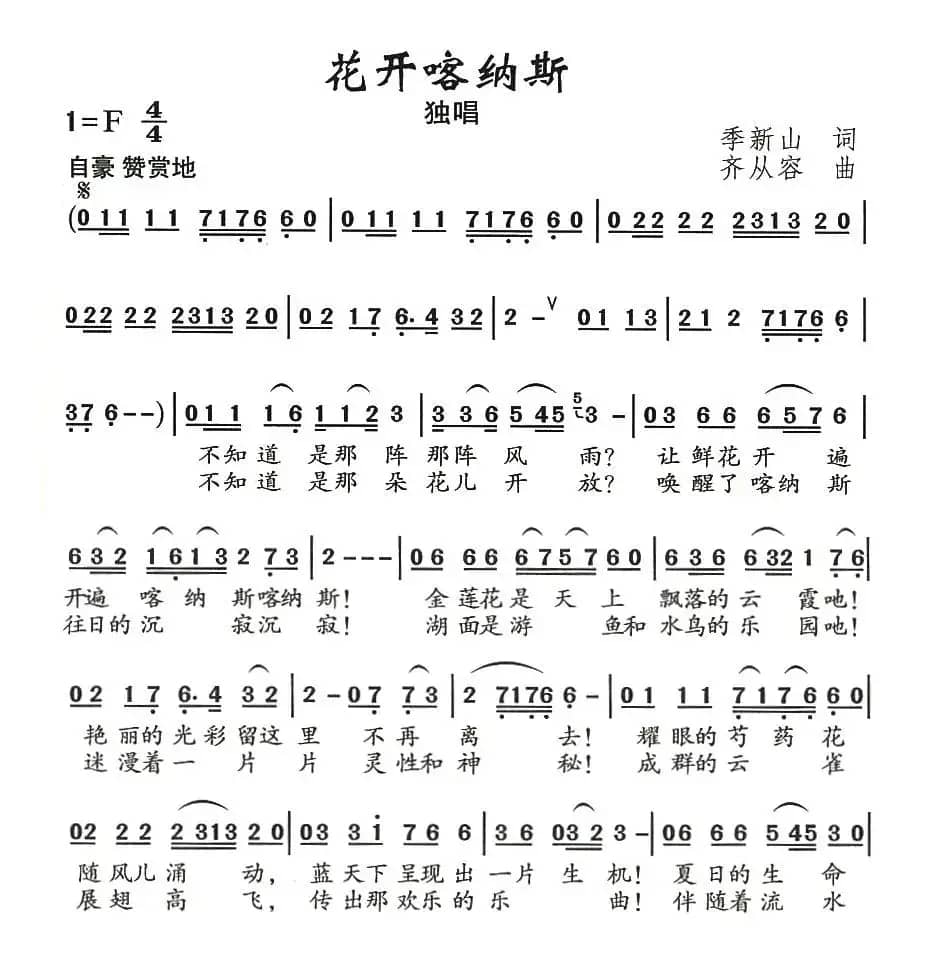 花开喀纳斯
独唱
1=F 4/4
季新山 词
自豪 赞赏地
齐从容 曲
(0 11 1 1 7176 6 0 | 0 11 1 1 7176 6 0 | 0 22 2 2 2313 2 0 |
0 22 2 2 2313 2 0 | 0 2 1 7 6. 4 3 2 | 2 - ∨ 0 1 1 3 | 2 1 2 7176 6 |
3 7 6 - - ) | 0 1 1 1 6 1 1 2 3 | 3 3 6 5 45 5 3 - | 0 3 6 6 6 5 7 6 |
不知道 是那 阵 那阵 风 雨? 让鲜花开 遍
不知道 是那 朵 花儿 开 放? 唤醒了喀纳 斯
6 3 2 1 6 1 3 2 7 3 | 2 - - - | 0 6 6 6 6 7 5 7 6 0 | 6 3 6 6 32 1 7 6 |
开遍 喀 纳 斯喀纳斯! 金莲花是 天 上 飘落的云 霞吔!
往日的沉 寂沉 寂! 湖面是游 鱼和 水鸟的乐 园吔!
0 2 1 7 6. 4 3 2 | 2 - 0 7 7 3 | 2 7176 6 - | 0 1 1 1 7 1 7 6 6 0 |
艳丽的光彩留这里 不再 离 去! 耀眼的芍 药 花
迷漫着一 片片 灵性和神 秘! 成群的云 雀
02 2 2 2 313 2 0 | 03 3 1 7 6 6 | 3 6 03 2 3 - | 06 6 6 5 45 3 0 |
随风儿涌 动, 蓝天下呈现出一片生机! 夏日的生 命
展翅高 飞, 传出那欢乐的乐 曲! 伴随着流 水